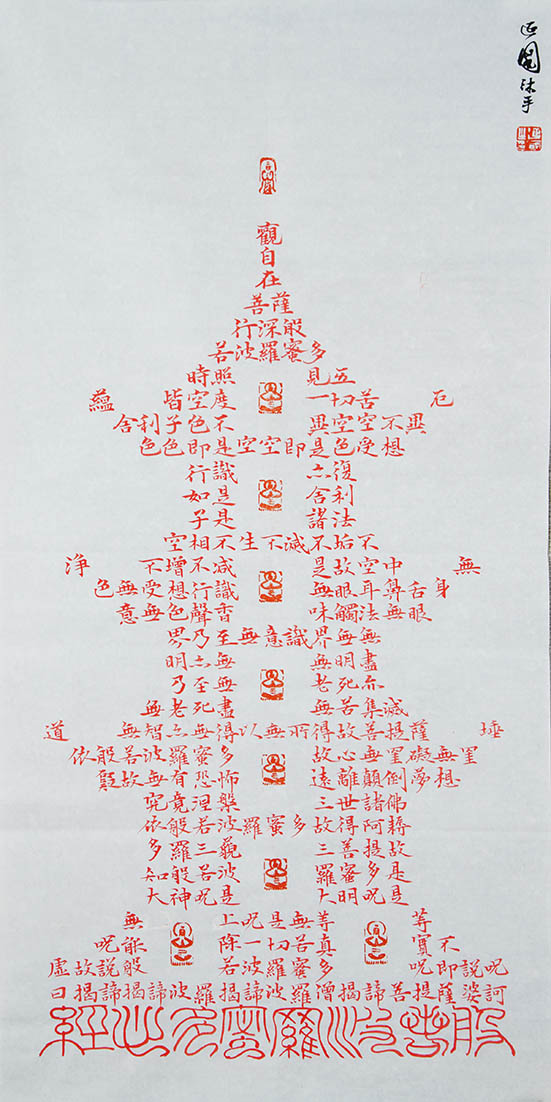 沐手
觀
自
在
菩薩
行深般
若波羅蜜多
時照 見五
蘊 皆空度 一切苦 厄
舍利子色不 異空空不異
色色即是空空即是色受想
行識 亦復
如是 舍利
子是 諸法
空相不生不滅不垢不
淨 不增不減 是故空中 無
色無受想行識 無眼耳鼻舌身
意無色聲香 味觸法無眼
界乃至無意識界無無
明亦無 無明盡
乃至無 老死亦
無老死盡 無苦集滅
道 無智亦無得以無所得故菩提薩 埵
依般若波羅蜜多 故心無罣礙無罣
礙故無有恐怖 遠離顛倒夢想
究竟涅槃 三世諸佛
依般若波羅蜜多故得阿耨
多羅三藐 三菩提故
知般若波 羅蜜多是
大神呪是 大明呪是
無 上呪是無等 等
呪能 除一切苦真 實不
虛故說般 若波羅蜜多 呪即說呪
曰揭諦揭諦波羅揭諦波羅僧揭諦菩提薩婆訶
般若波羅蜜多心經